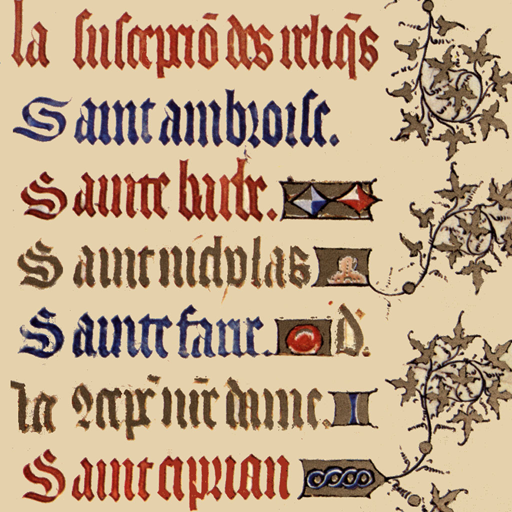 la suscepciō des reliq̄s
Saint ambroise.
Sainte barbe.
Saint nicholas
Sainte fare. id'.
la 9cepc̄ nr̄e dame.
Saint ciprian